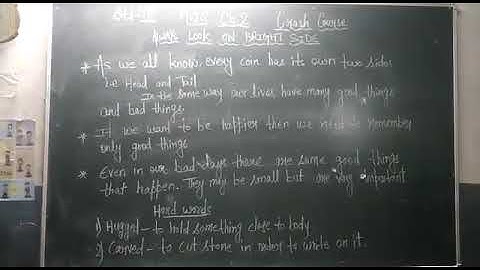 Crash Course
ALWAYS LOOK ON BRIGHT SIDE
* As we all know, every coin has its own two sides
i.e Head and Tail
In the same way our lives have many good things
and bad things
* If we want to be happier then we need to remember
only good things
* Even in our bad days there are some good things
that happen. They may be small but are very important
Hard words
1) Hugged - to hold something close to body
2) Carved - to cut stone in order to write on it.